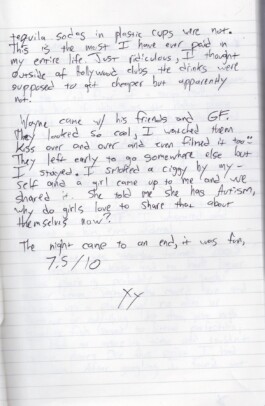 tequila sodas in plastic cups were not.
This is the most I have ever paid in
my entire life. Just ridiculous, I thought
outside of Hollywood clubs the drinks were
supposed to get cheaper but apparently
not.
Wayne came w/ his friends and GF.
They looked so cool, I watched them
kiss over and over and even filmed it too.
They left early to go somewhere else but
I stayed. I smoked a ciggy by my-
self and a girl came up to me and we
shared it. She told me she has Autism,
why do girls love to share that about
themselves now?
The night came to an end, it was fun,
7.5/10
XY